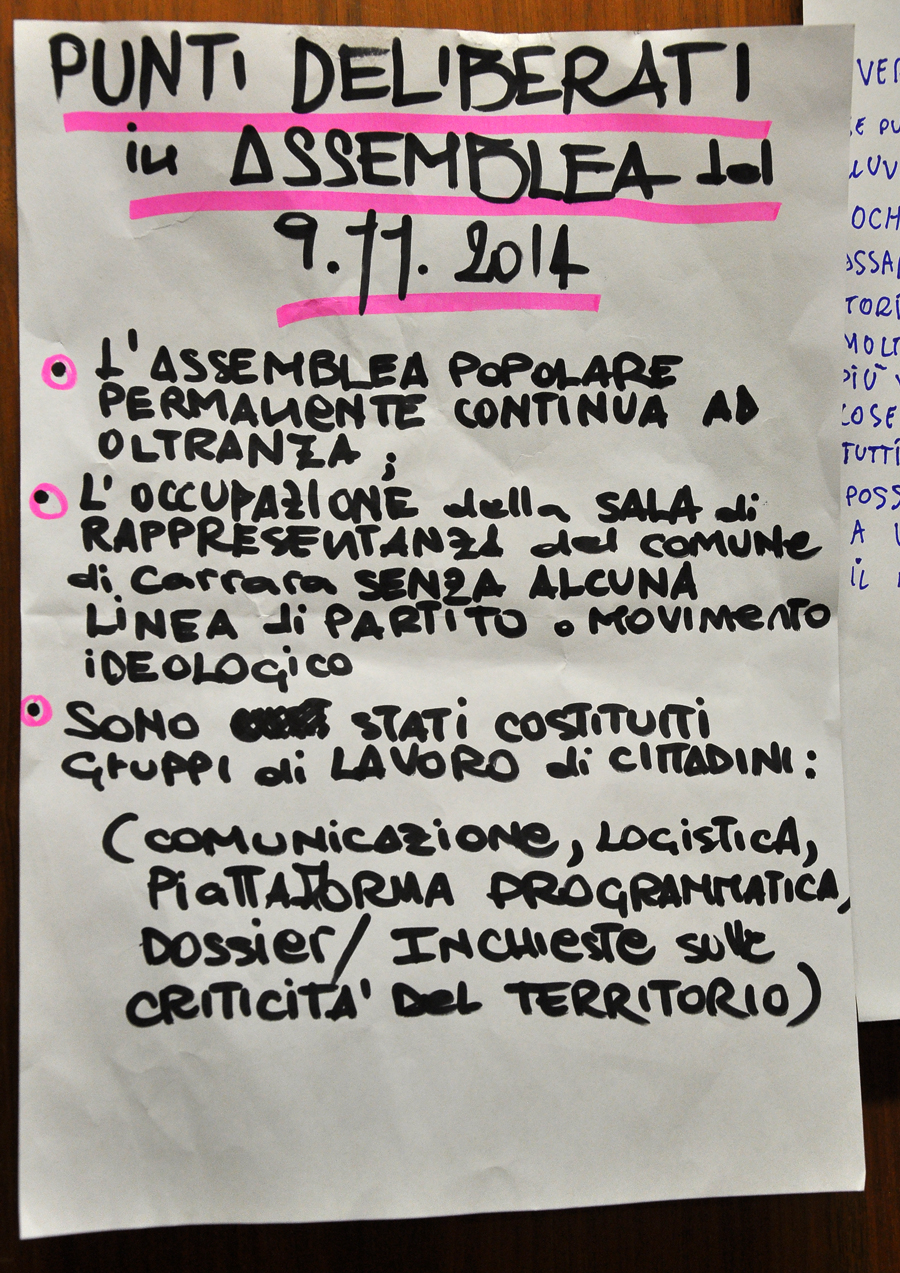 PUNTI DELIBERATI
in ASSEMBLEA del
9.11.2014
L'ASSEMBLEA POPOLARE
PERMANENTE CONTINUA AD
OLTRANZA;
L'OCCUPAZIONE della SALA di
RAPPRESENTANZA del COMUNE
di Carrara SENZA ALCUNA
LINEA di PARTITO o MOVIMENTO
IDEOLOGICO
SONO STATI COSTITUITI
GRUPPI di LAVORO di CITTADINI:
(COMUNICAZIONE, LOGISTICA,
PIATTAFORMA PROGRAMMATICA,
DOSSIER/ INCHIESTE SULLE
CRITICITA' DEL TERRITORIO)
VER
E PU
LUV
OCH
OSSA
TORI
MOLT
PIÙ
COSE
TUTTI
POSS
A
IL